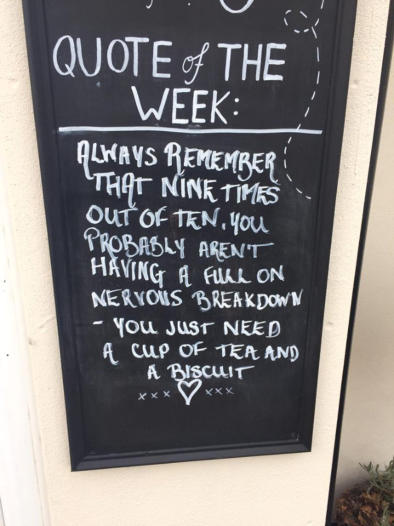 QUOTE of THE
WEEK:
ALWAYS REMEMBER
THAT NINE TIMES
OUT OF TEN, YOU
PROBABLY AREN'T
HAVING A FULL ON
NERVOUS BREAKDOWN
- YOU JUST NEED
A CUP OF TEA AND
A BISCUIT
xxx ♡ xxx